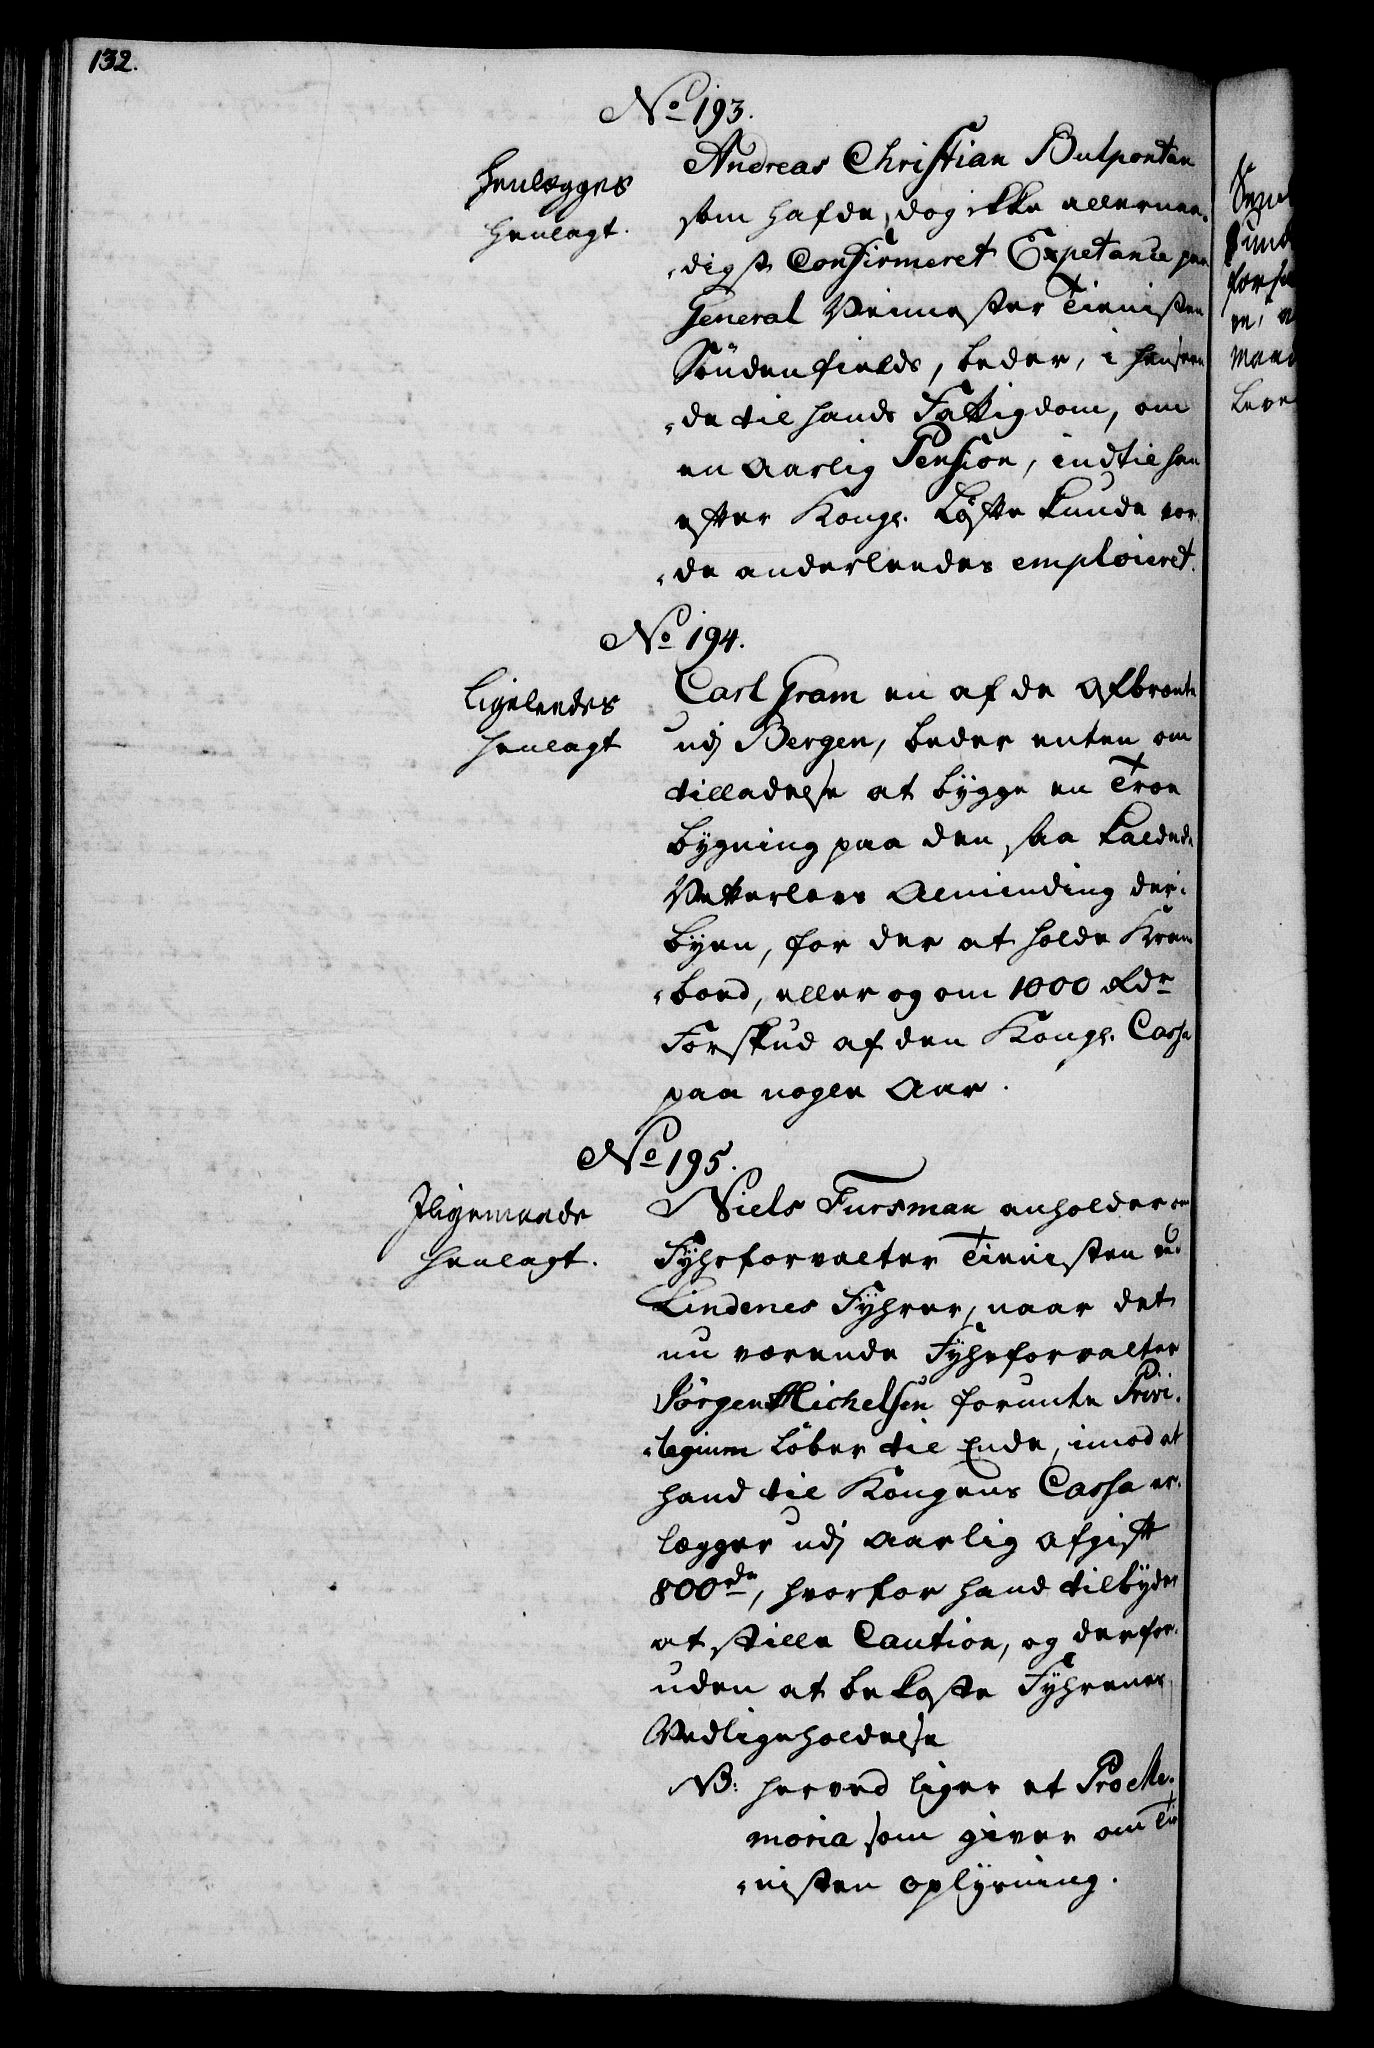 132.
No 193.
Henlægges
henlagt.
Andreas Christian Bulpontan
som hafde, dog ikke allernaa-
-digst Confirmeret Expetance paa
General Veimester Tienisten
Søndenfields, beder, i henseen
-de til hands Fattigdom, om
en aarlig Pension, indtil han
efter Kongl. Løfte kunde vor
-de anderleedes emploieret.
No 194.
Ligeleedes
henlagt
Carl Gram en af de afbrændte
udj Bergen, beder enten om
tilladelse at bygge en Træe
bygning paa den saa kaldede
Vetterlevs Alminding der i
Byen, for der at holde Kram
-boed, eller og om 1000 Rdr
Forskud af den Kongl. Cassa
paa nogle Aar.
No 195.
Iligemaade
henlagt.
Niels Fursman anholder om
Fyhrforvalter Tienisten ved
Lindenes Fyhrer, naar det
nu værende Fyhrforvalter
Jørgen Michelsen forundte Privi-
-legium løber til Ende, imod at
hand til Kongens Cassa er-
lægger udj aarlig afgift
800 rdr, hvorfor hand tilbyder
at stille Caution, og derfor-
uden at bekoste Fyhrenes
Vedligeholdelse
NB: herved liger et Pro Me-
moria som giver om Tie
-nisten oplysning.